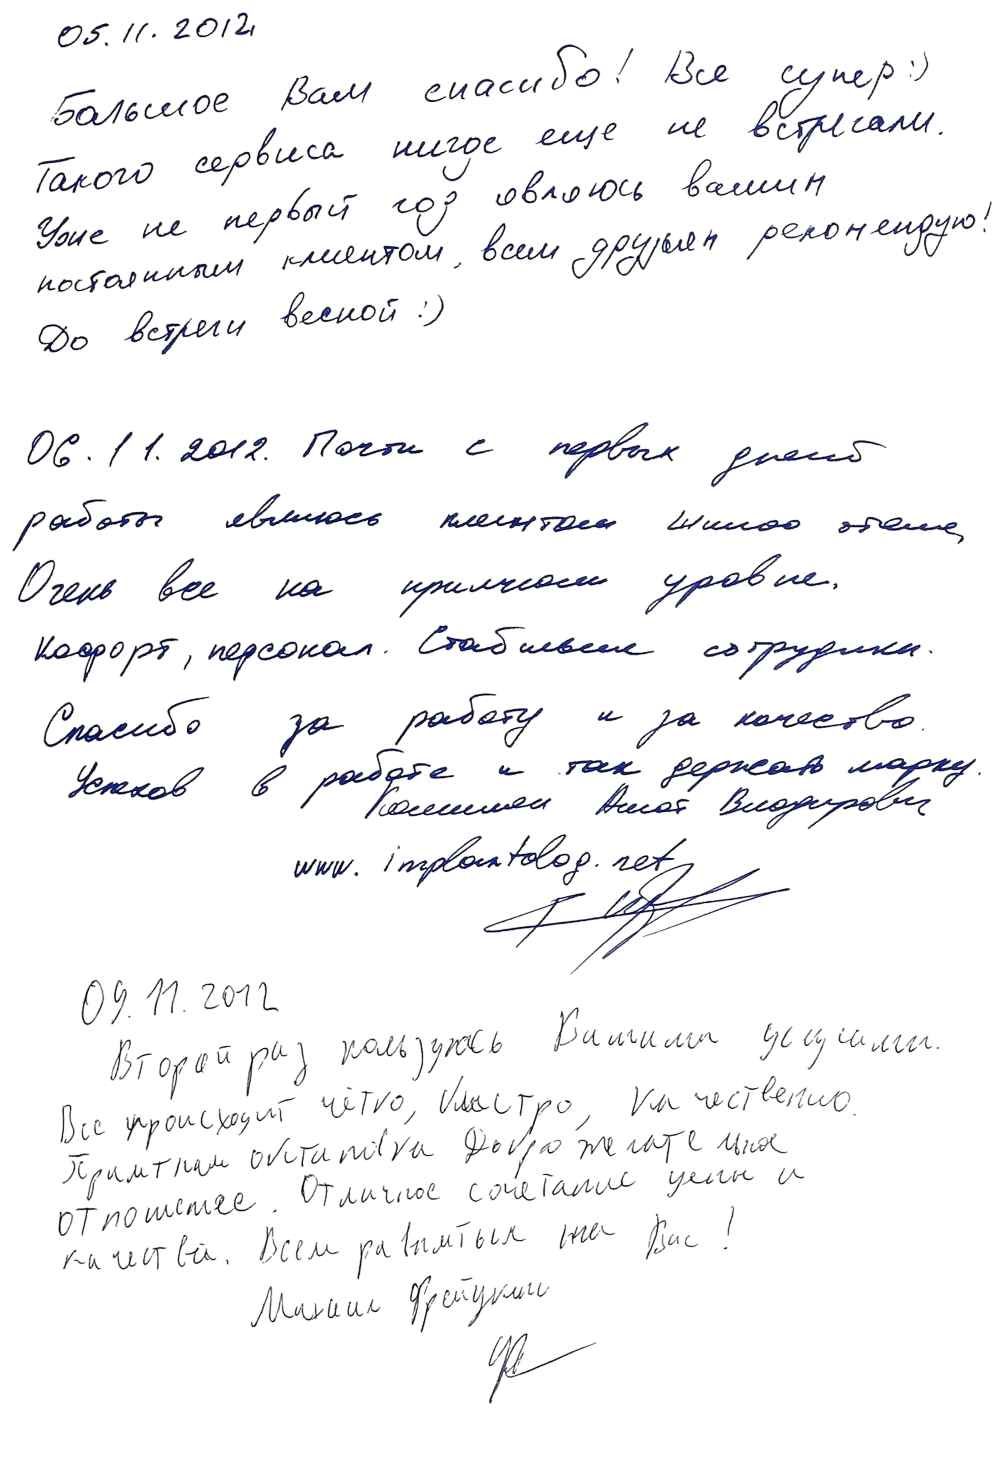 05.11.2012
Большое Вам спасибо! Все супер:)
Такого сервиса нигде еще не встречали.
Уже не первый год являюсь вашим
постоянным клиентом, всем друзьям рекомендую!
До встречи весной :)
06.11.2012. Почти с первых дней
работы являюсь клиентом
Очень все на приличном уровне.
Комфорт, персонал. Стабильные сотрудники.
Спасибо за работу и за качество.
Успехов в работе и так держать марку.
Владимирович
www.implantolog.net
09.11.2012
Второй раз пользуюсь Вашими услугами.
Все происходит чётко, быстро, качественно.
Приятная обстановка Доброжелательное
отношение. Отличное сочетание цены и
качества. Всем равняться на Вас!
Михаил